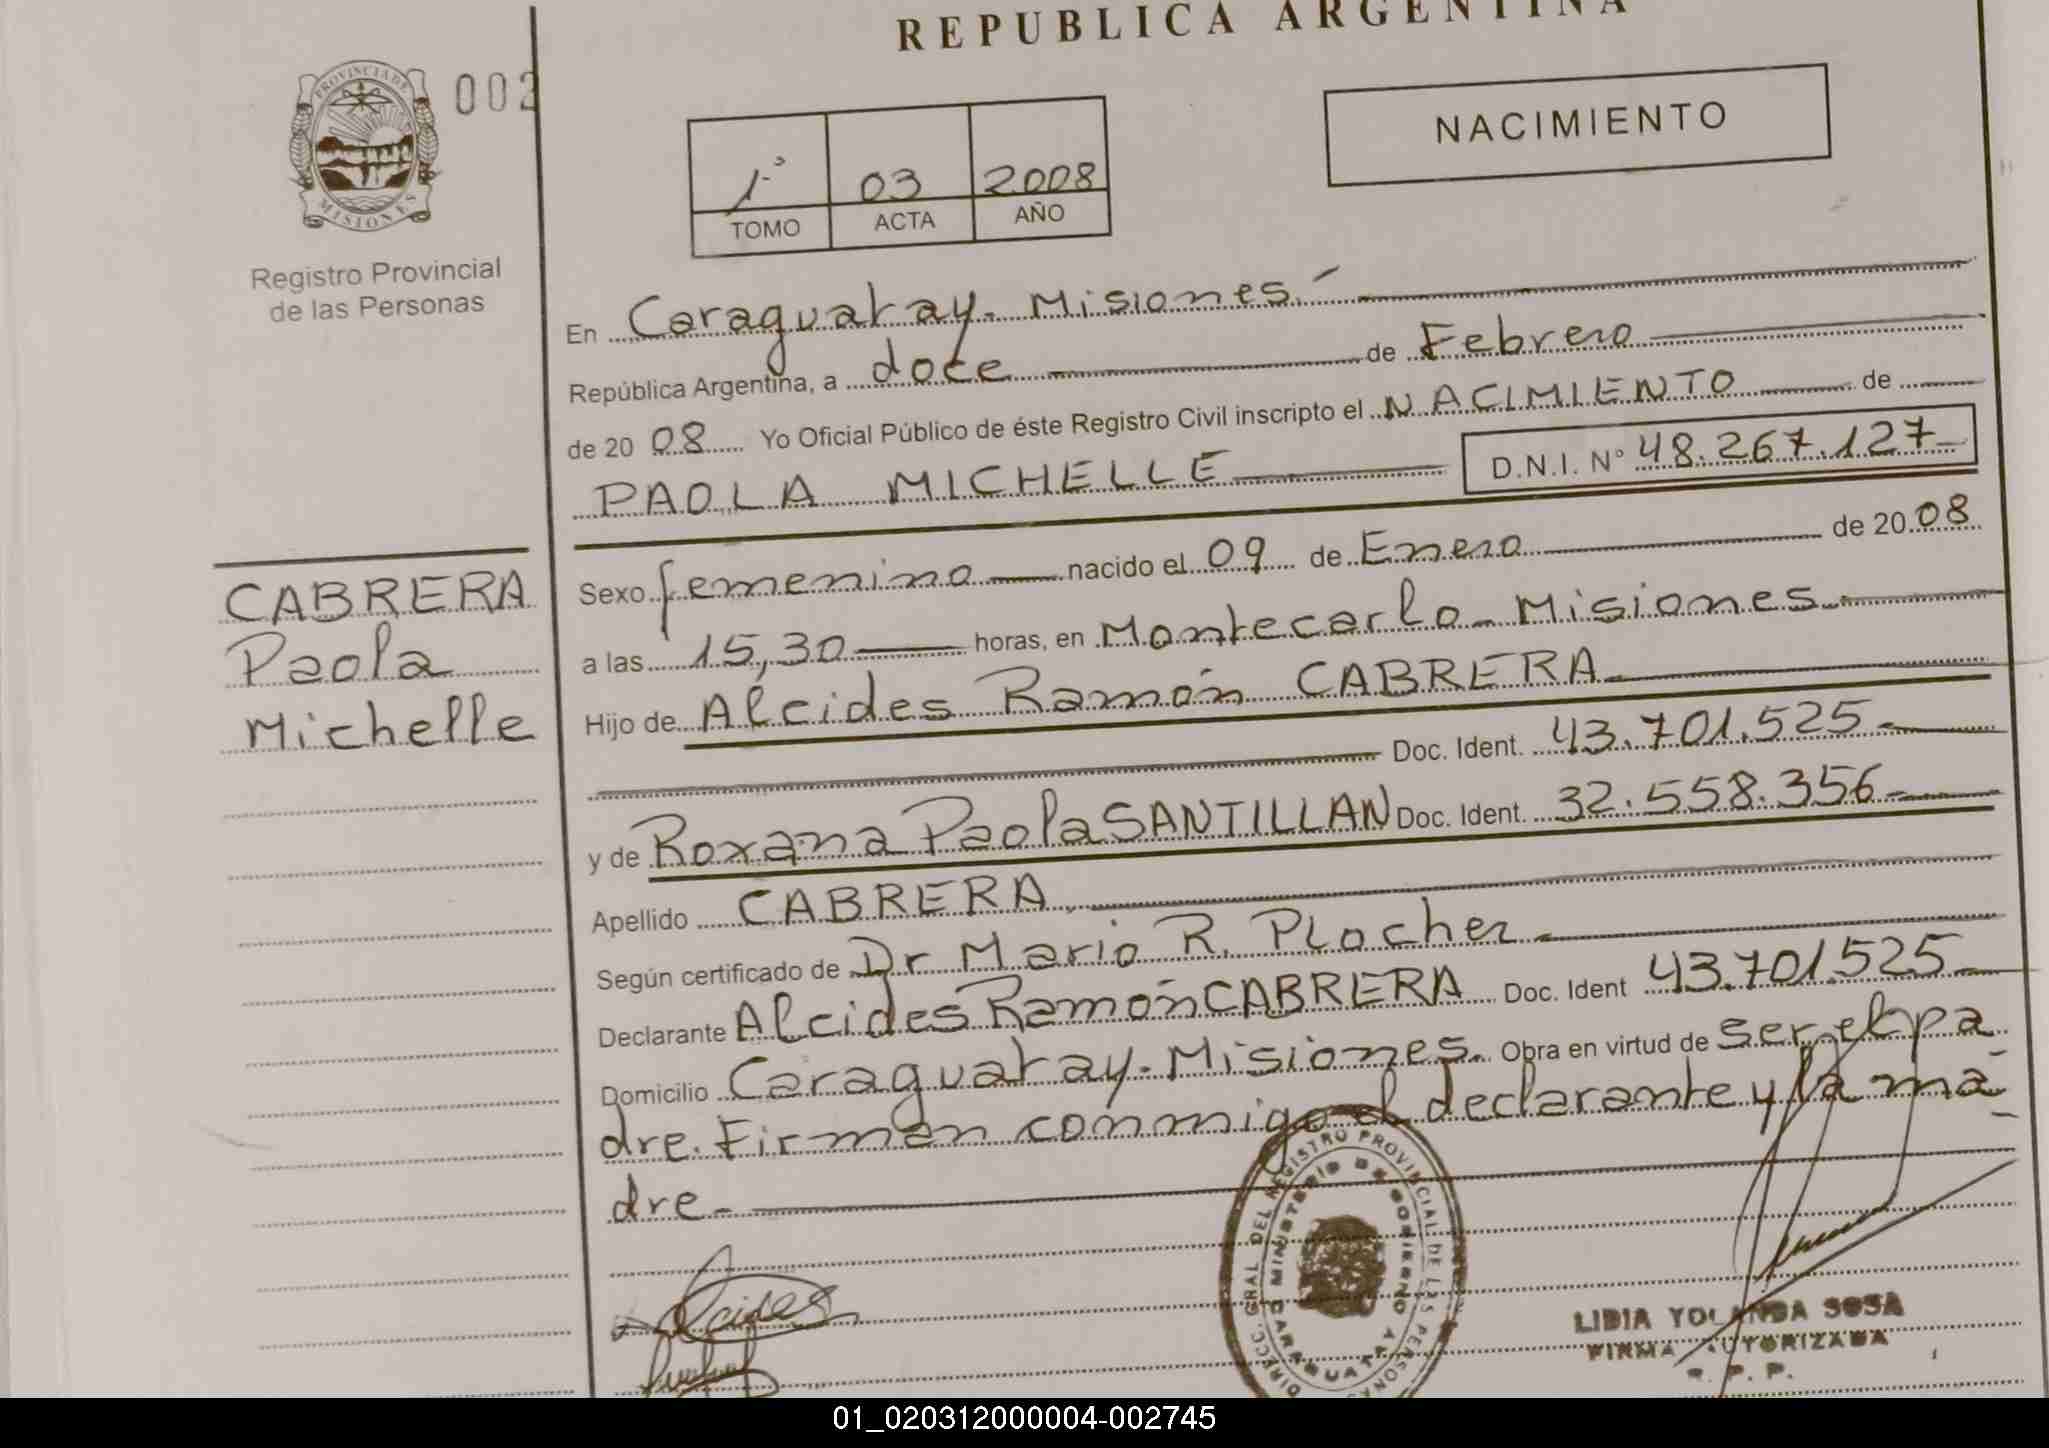 REPUBLICA ARGENTINA
PROVINCIA DE
MISIONES
002
Registro Provincial
de las Personas
NACIMIENTO
1º 03 2008
TOMO ACTA AÑO
En Caraguatay - Misiones.
República Argentina, a doce de Febrero
de 20 08 Yo Oficial Público de éste Registro Civil inscripto el NACIMIENTO de
PAOLA MICHELLE D.N.I. Nº 48.267.127
CABRERA
Paola
Michelle
Sexo femenino nacido el 09 de Enero de 20 08
a las 15,30 horas, en Montecarlo - Misiones.
Hijo de Alcides Ramón CABRERA
Doc. Ident. 43.701.525.-
y de Roxana Paola SANTILLAN Doc. Ident. 32.558.356.-
Apellido CABRERA.
Según certificado de Dr Mario R. Plocher.
Declarante Alcides Ramón CABRERA Doc. Ident 43.701.525
Domicilio Caraguatay - Misiones. Obra en virtud de ser el pa
dre. Firman conmigo el declarante y la ma-
dre.-
Alcides
DIRECC. GRAL DEL REGISTRO PROVINCIAL DE LAS PERSONAS
MINISTERIO DE GOBIERNO
CARAGUATAY
LIDIA YOLANDA SOSA
FIRMA AUTORIZADA
R. P. P.
01_020312000004-002745